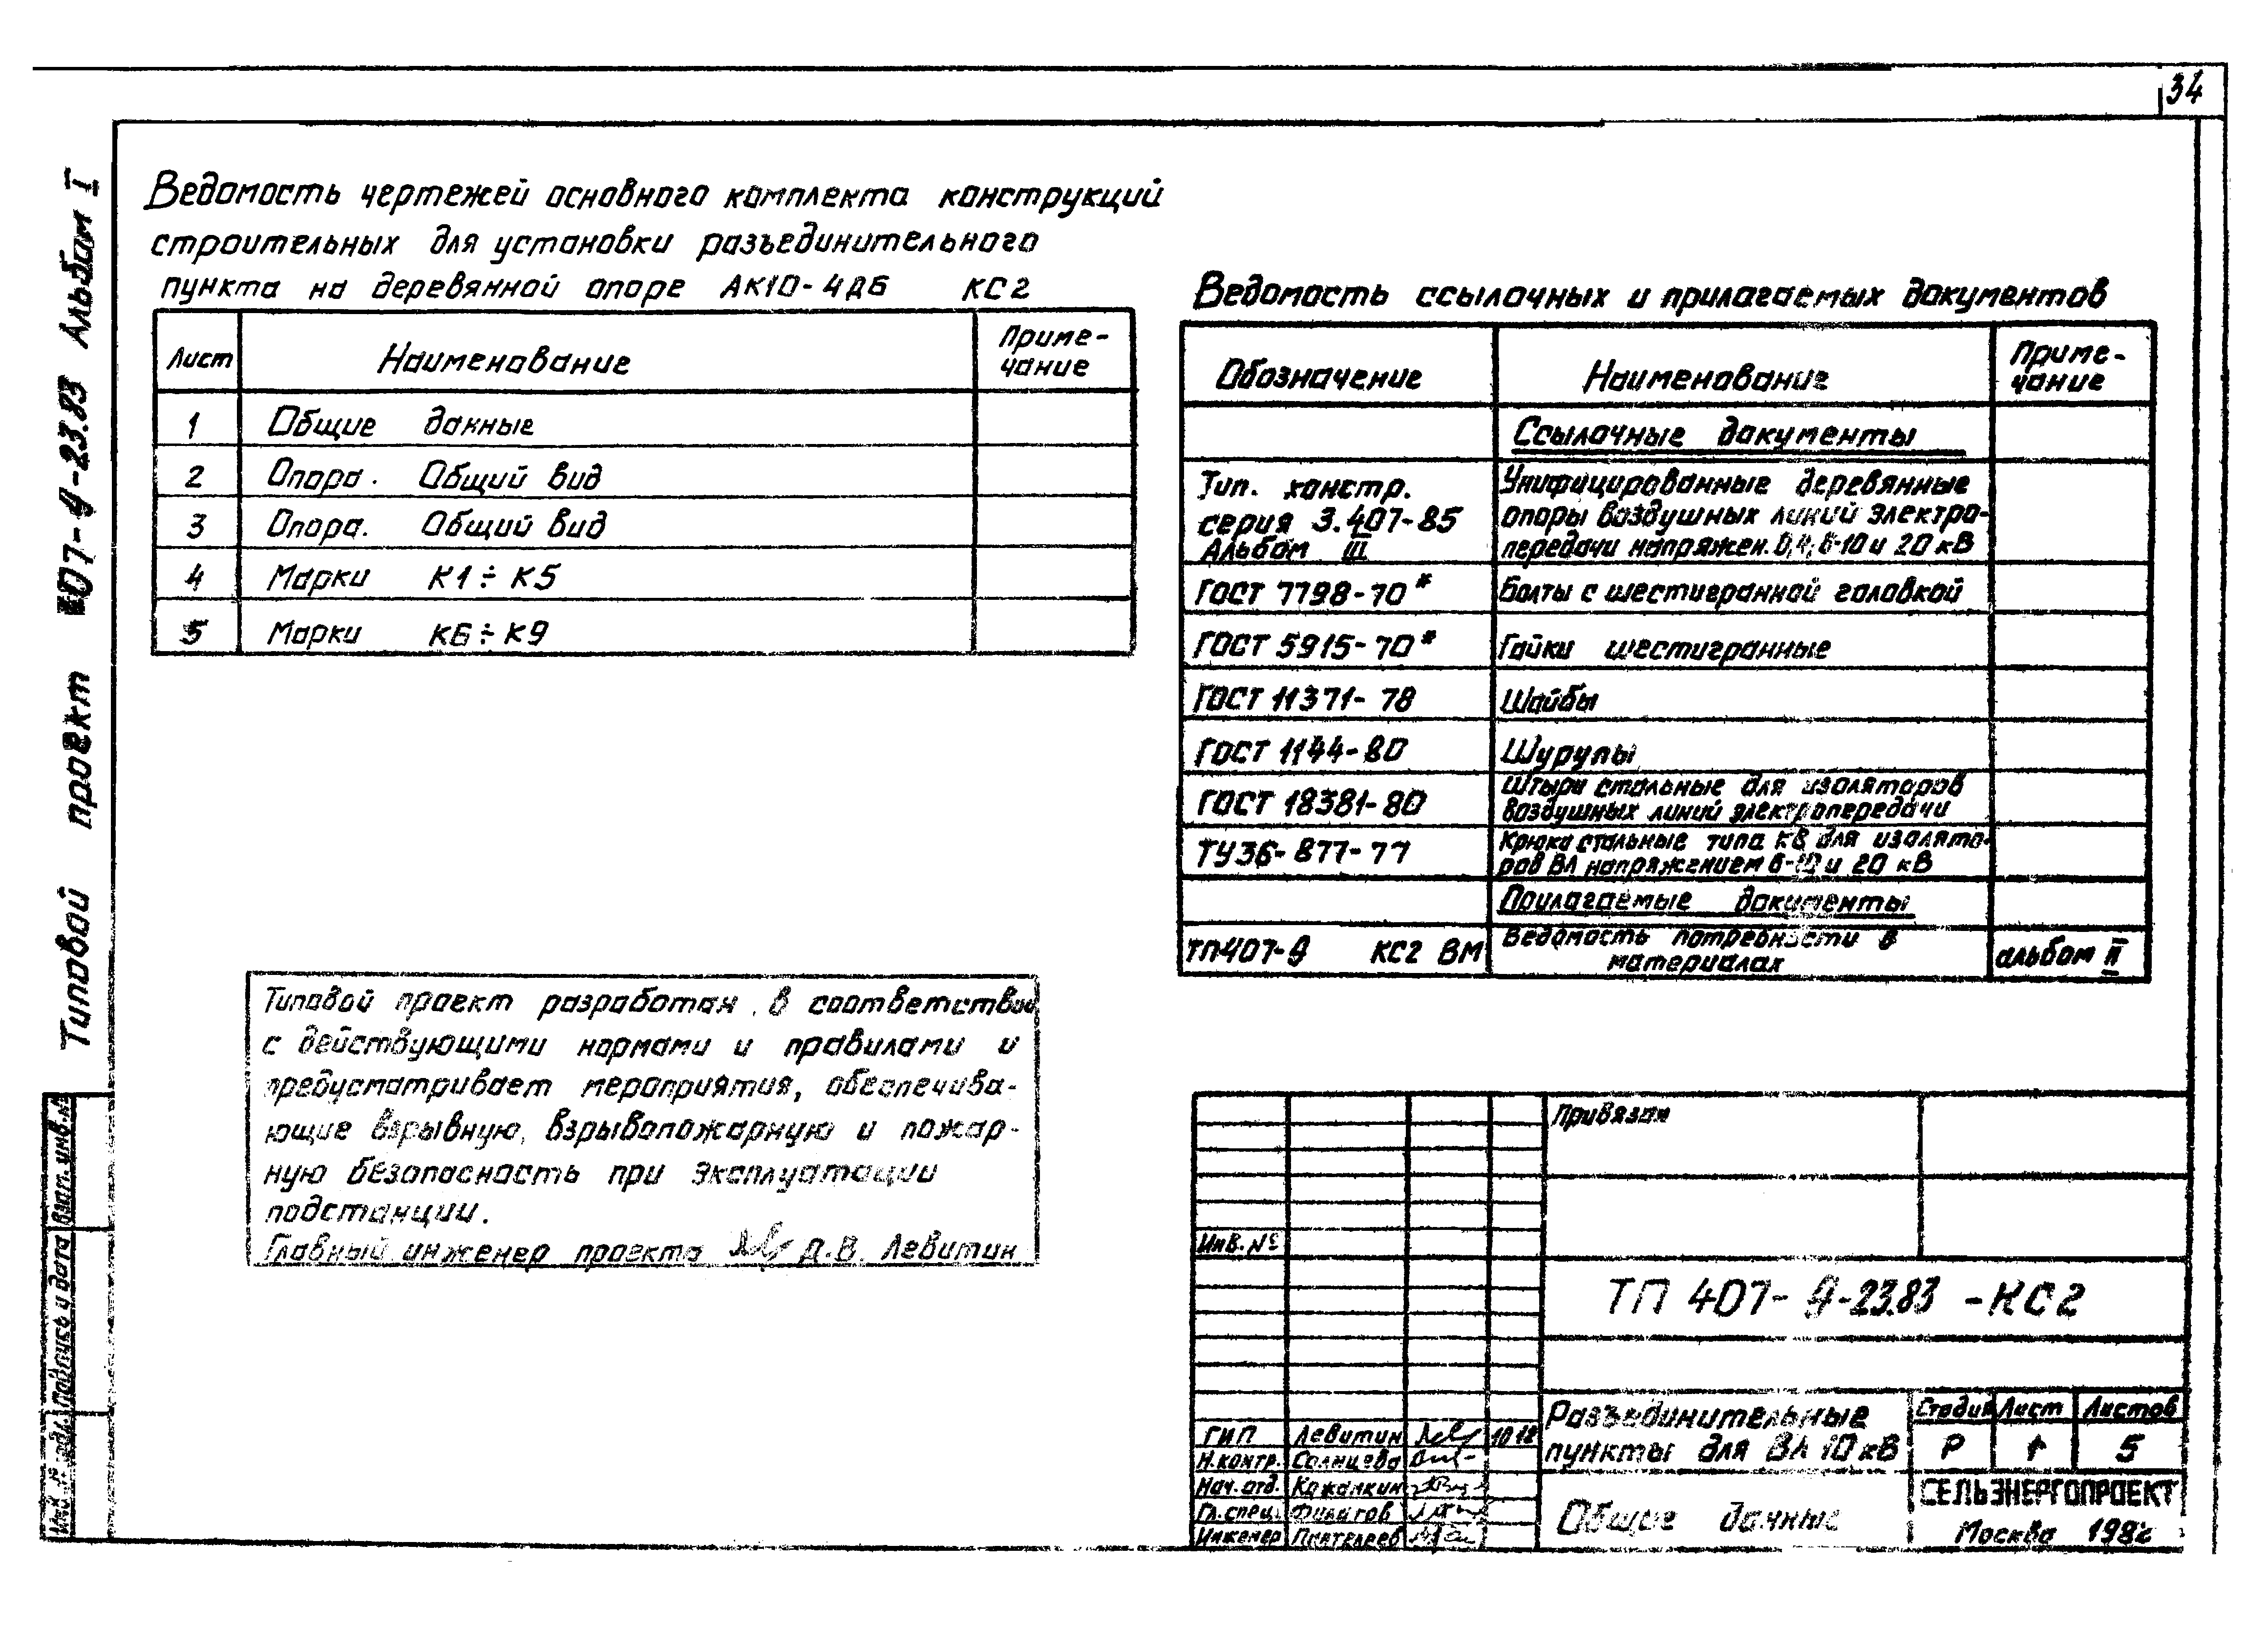 34
Типовой проект 407-9-23.83 Альбом I
Ведомость чертежей основного комплекта конструкций
строительных для установки разъединительного
пункта на деревянной опоре АК10-4ДБ КС2
Лист Наименование Приме-
чание
1 Общие данные
2 Опора. Общий вид
3 Опора. Общий вид
4 Марки К1÷К5
5 Марки К6÷К9
Ведомость ссылочных и прилагаемых документов
Обозначение Наименование Приме-
чание
Ссылочные документы
Тип. констр.
серия 3.407-85
Альбом III
Унифицированные деревянные
опоры воздушных линий электро-
передачи напряжен. 0,4, 6-10 и 20 кВ
ГОСТ 7798-70* Болты с шестигранной головкой
ГОСТ 5915-70* Гайки шестигранные
ГОСТ 11371-78 Шайбы
ГОСТ 1144-80 Шурупы
ГОСТ 18381-80
Штыри стальные для изоляторов
воздушных линий электропередачи
ТУ36-877-77
Крюки стальные типа КВ для изолято-
ров ВЛ напряжением 6-10 и 20 кВ
Прилагаемые документы
ТП407-9 КС2 ВМ
Ведомость потребности в
материалах
альбом II
Типовой проект разработан в соответствии
с действующими нормами и правилами и
предусматривает мероприятия, обеспечива-
ющие взрывную, взрывопожарную и пожар-
ную безопасность при эксплуатации
подстанции.
Главный инженер проекта Д.В. Левитин
Взам. инв. №
Подпись и дата
Инв. № подл.
Привязан
Инв. №
ТП 407-9-23.83 -КС2
ГИП Левитин
Н.контр. Солнцева
Нач. отд. Кожанкин
Гл. спец.
Инженер
Разъединительные
пункты для ВЛ 10 кВ
Стадия Лист Листов
Р 1 5
Общие данные
СЕЛЬЭНЕРГОПРОЕКТ
Москва